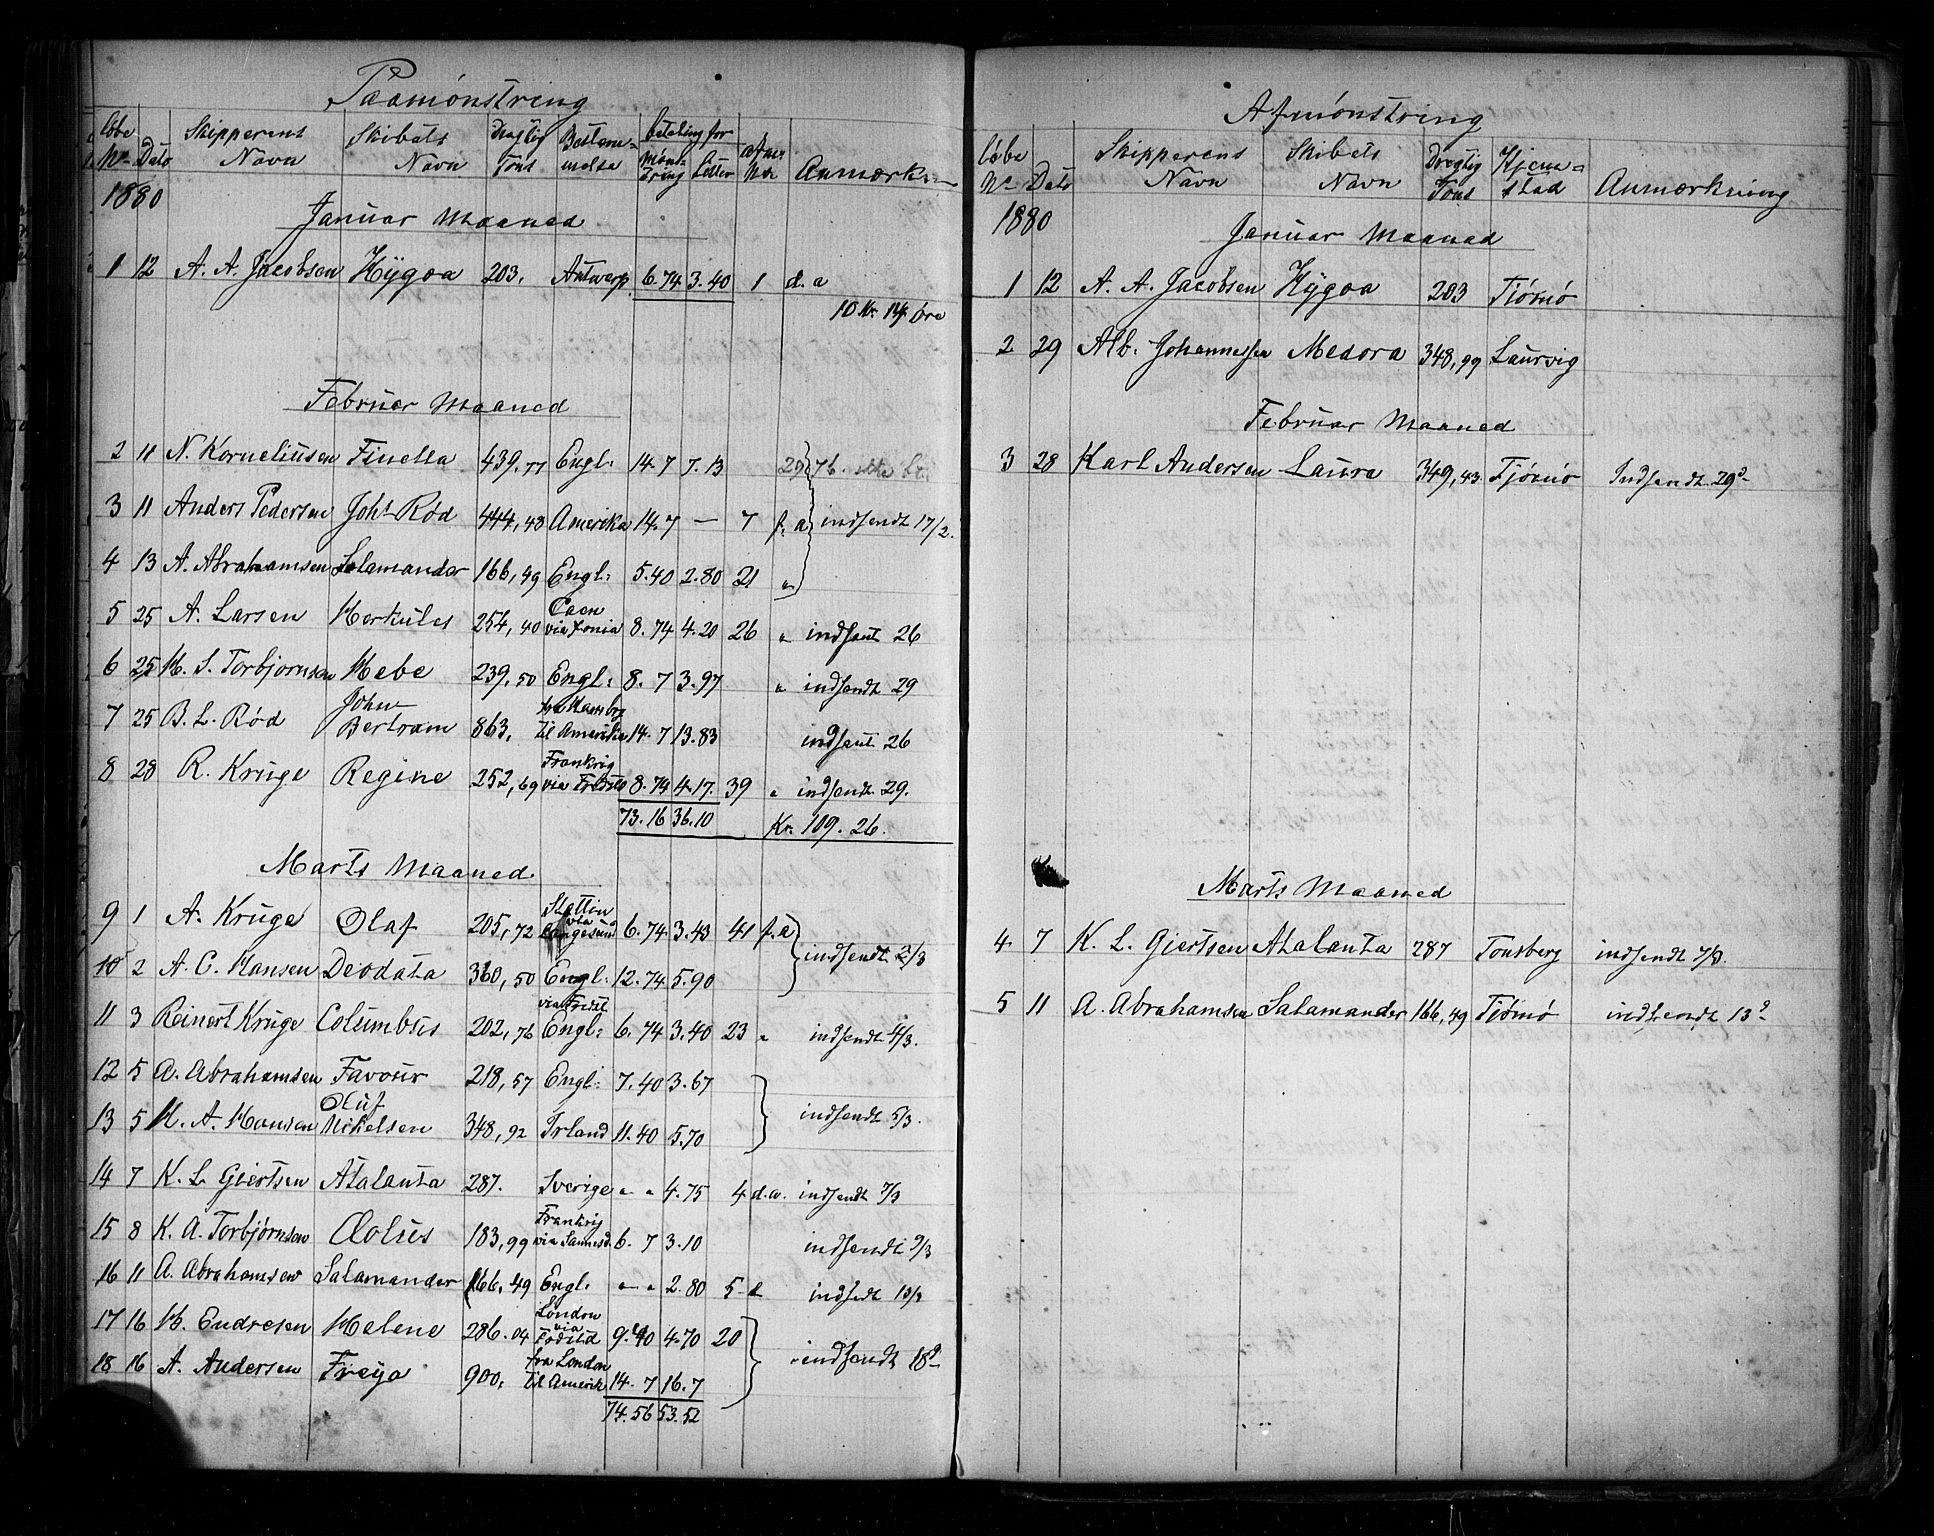 Paamönstring
Löbe No Dato Skipperens Navn Skibets Navn Drægtig Tons Bestemmelse betaling for Mönstring Anmærkn
1880
Januar Maaned
1 12 A. A. Jacobsen Hygea 203. Antwerp 6.74 3.40 1 d. a
10 Kr. 14 Öre
Februar Maaned
2 11 N. Korneliusen Finella 439,77 Engl: 14.7 7.13 29 76.
3 11 Anders Pedersen Joht Röd 444,48 Amerika 14.7 — 7 f. a indsendt 17/2.
4 13 A. Abrahamsen Salamander 166,49 Engl: 5.40 2.80 21 "
5 25 A. Larsen Herkules 254,40 Caen via 8.74 4.20 26 " indsent 26
6 25 H. S. Torbjornsen Hebe 239,50 Engl: 8.7 3.97 " indsendt 29
7 25 B. L. Röd John Bertram 863. til Amerika 14.7 13.83 indsent 26
8 28 R. Kruge Regine 252,69 Frankrig via 8.74 4.17. 39 " indsendt 29.
73.16 36.10 Kr. 109.26.
Marts Maaned
9 1 A. Kruge Olaf 205,72 Stettin via Langesund 6.74 3.43 41 f. a
indsendt 2/3
10 2 A. C. Hansen Deodata 360,50 Engl: 12.74 5.90
11 3 Reinert Kruge Columbus 202,76 via Fredst Engl: 6.74 3.40 23 " indsendt 4/3.
12 5 A. Abrahamsen Favour 218,57 Engl: 7.40 3.67
indsendt 5/3.
13 5 H. A. Hansen Oluf Nikelsen 348,92 Irland 11.40 5.70
14 7 K. L. Giertsen Atalanta 287. Sverige " " 4.75 4 d.a. indsendt 7/3
15 8 K. A. Torbjörnsen Æolus 183,99 Frankrig via Sannesd. 6.7 3.10 indsendt 9/3
16 11 A. Abrahamsen Salamander 166,49 Engl: " " 2.80 5 d indsedt 13/3
17 16 H. Endresen Helene 286.04 London via 9.40 4.70 20
indsendt 18d
18 16 A. Andersen Freya 900. fra London til Amerik 14.7 16.7
74.56 53.52
Afmönstring
Löbe No Dato Skipperens Navn Skibets Navn Drægtig Tons Hjemstad Anmærkning
1880
Januar Maaned
1 12 A. A. Jacobsen Hygea 203 Tjömö
2 29 Alb. Johannessen Medora 348,99 Laurvig
Februar Maaned
3 28 Karl Andersen Laura 349,43 Tjömö Indsendt 29d
Marts Maaned
4 7 K. L. Giertsen Atalanta 287 Tönsberg indsendt 7/3.
5 11 A. Abrahamsen Salamander 166,49 Tjömö indsendt 13d